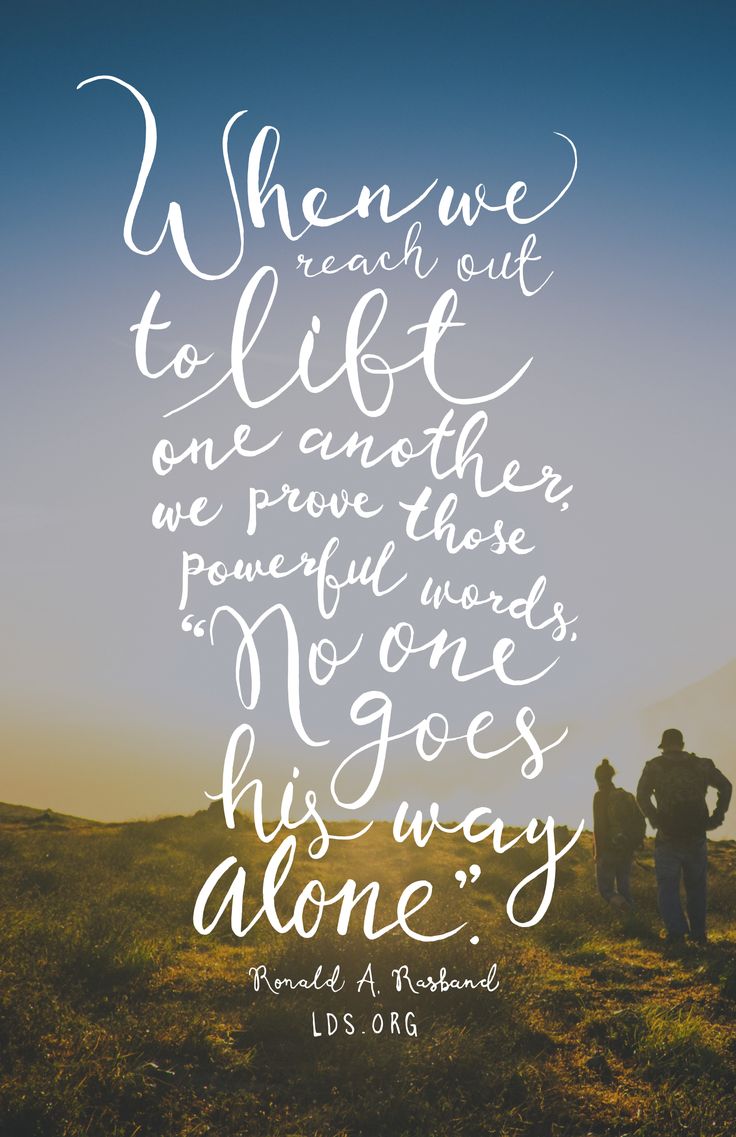 When we
reach out
to lift
one another,
we prove those
powerful words,
“No one
goes
his way
alone”.
Ronald A. Rasband
LDS.ORG